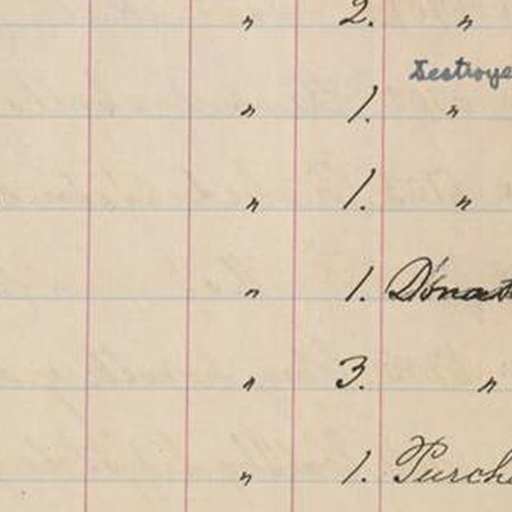 " 2. "
Destroye
" 1. "
" 1. "
" 1. Donat
" 3. "
" 1. Purcha